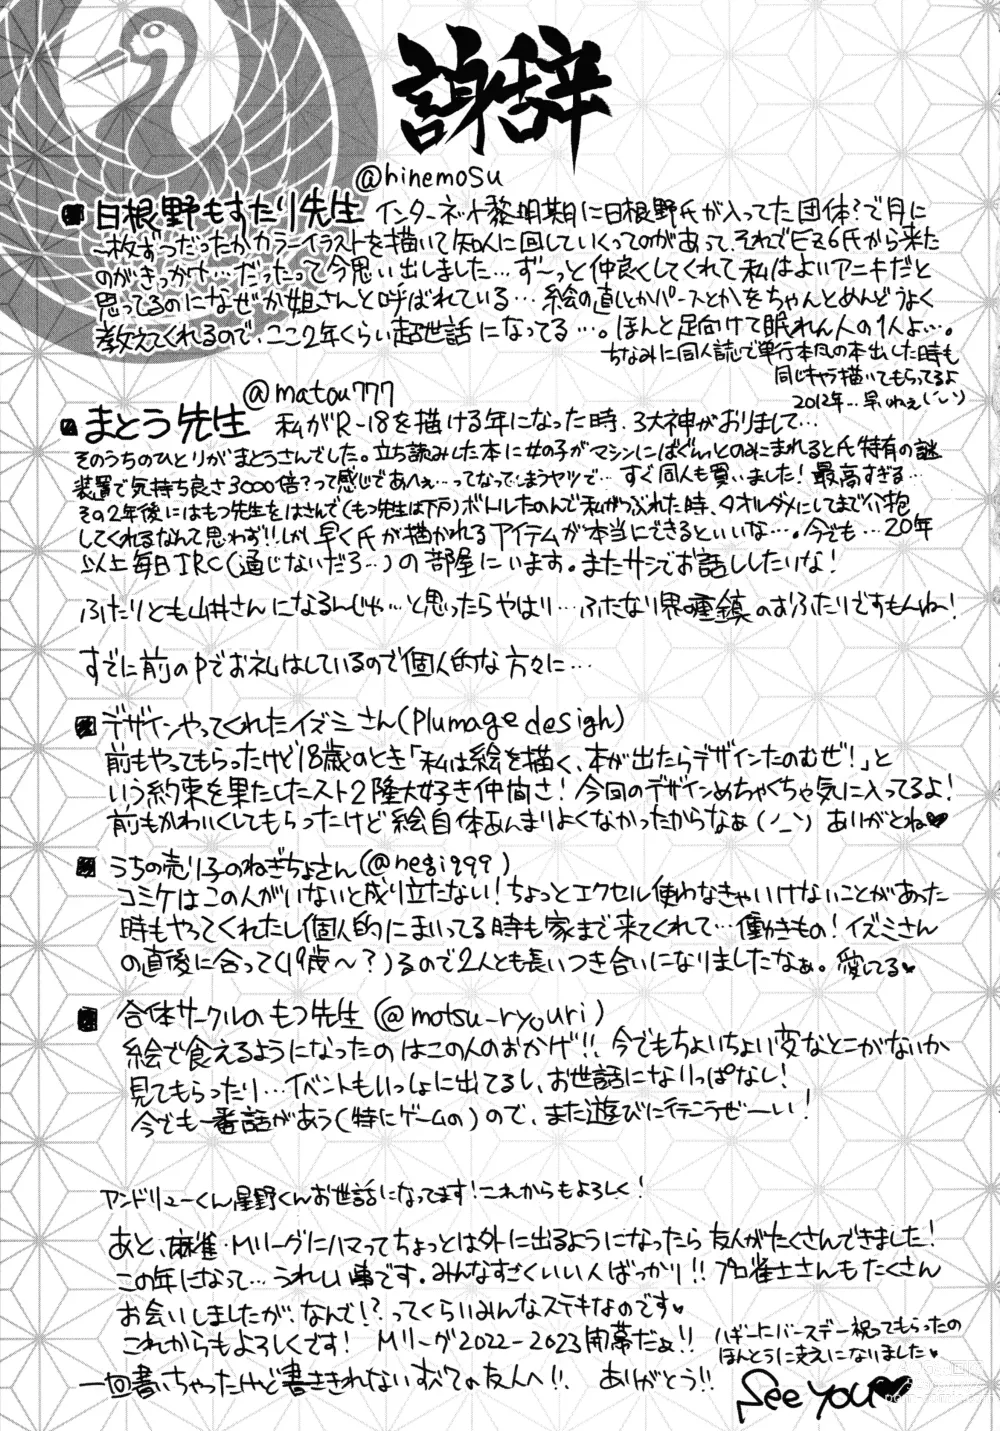 謝辞
@hinemosu
■白根野もすたり先生 インターネット黎明期に白根野氏が入ってた団体?で月に
一枚ずつだったかカラーイラストを描いて知人に回していくってのがあって、それでEz6氏から来た
のがきっかけ…だったって今思い出しました…ず〜っと仲良くしてくれて私はよいアニキだと
思ってるのになぜか姐さんと呼ばれている…絵の直しとかパースとかをちゃんとめんどうよく
教えてくれるので、ここ2年くらい超世話になってる…。ほんと足向けて眠れん人の1人よ…。
ちなみに同人誌で単行本風の本出した時も
同じキャラ描いてもらってるよ
2012年…早いねぇ
@matou777
■まとう先生 私がR-18を描ける年になった時、3大神がおりまして…
そのうちのひとりがまとうさんでした。立ち読みした本に女の子がマシンにばぐんっとのみこまれると氏特有の謎
装置で気持ち良さ3000倍?って感じであへぇ…ってなってしまうヤツで…すぐ同人も買いました!最高すぎる…
その2年後にはもつ先生をはさんで(もつ先生は下戸)ボトルたのんで私がつぶれた時、タオルダメにしてまで介抱
してくれるなんて思わず!!しかし早く氏が描かれるアイテムが本当にできるといいな…。今でも…20年
以上毎日IRC(通じないだろ…)の部屋にいます。またサシでお話ししたいな!
ふたりとも山井さんになるんじゃ…と思ったらやはり…ふたなり界の重鎮のおふたりですもんね〜!
すでに前のPでお礼はしているので個人的な方々に…
■デザインやってくれたイズミさん(Plumage design)
前もやってもらったけど18歳のとき「私は絵を描く、本が出たらデザインたのむぜ!」と
いう約束を果たしたスト2隆大好き仲間さ!今回のデザインめちゃくちゃ気に入ってるよ!
前もかわいくしてもらったけど絵自体あんまりよくなかったからなぁ(ノ_ン) ありがとね♥
■うちの売り子のねぎちょさん(@negi999)
コミケはこの人がいないと成り立たない!ちょっとエクセル使わなきゃいけないことがあった
時もやってくれたし個人的にまいってる時も家まで来てくれて…働きもの!イズミさん
の直後に合って(19歳〜?)るので2人とも長いつき合いになりましたなぁ。愛してる♥
■合体サークルのもつ先生(@motsu_ryouri)
絵で食えるようになったのはこの人のおかげ!!今でもちょいちょい変なとこがないか
見てもらったり…イベントもいっしょに出てるし、お世話になりっぱなし!
今でも一番話があう(特にゲームの)ので、また遊びに行こうぜーい!
アンドリューくん星野くんお世話になってます!これからもよろしく!
あと、麻雀・Mリーグにハマってちょっとは外に出るようになったら友人がたくさんできました!
この年になって…うれしい事です。みんなすごくいい人ばっかり!!プロ雀士さんもたくさん
お会いしましたが、なんで!?ってくらいみんなステキなのです♥
これからもよろしくです! Mリーグ2022-2023開幕だぁ!!
ハギーにバースデー祝ってもらったの
ほんとうに支えになりました♥
一回書いちゃったけど書ききれないすべての友人へ!!、ありがとう!!
See you♥